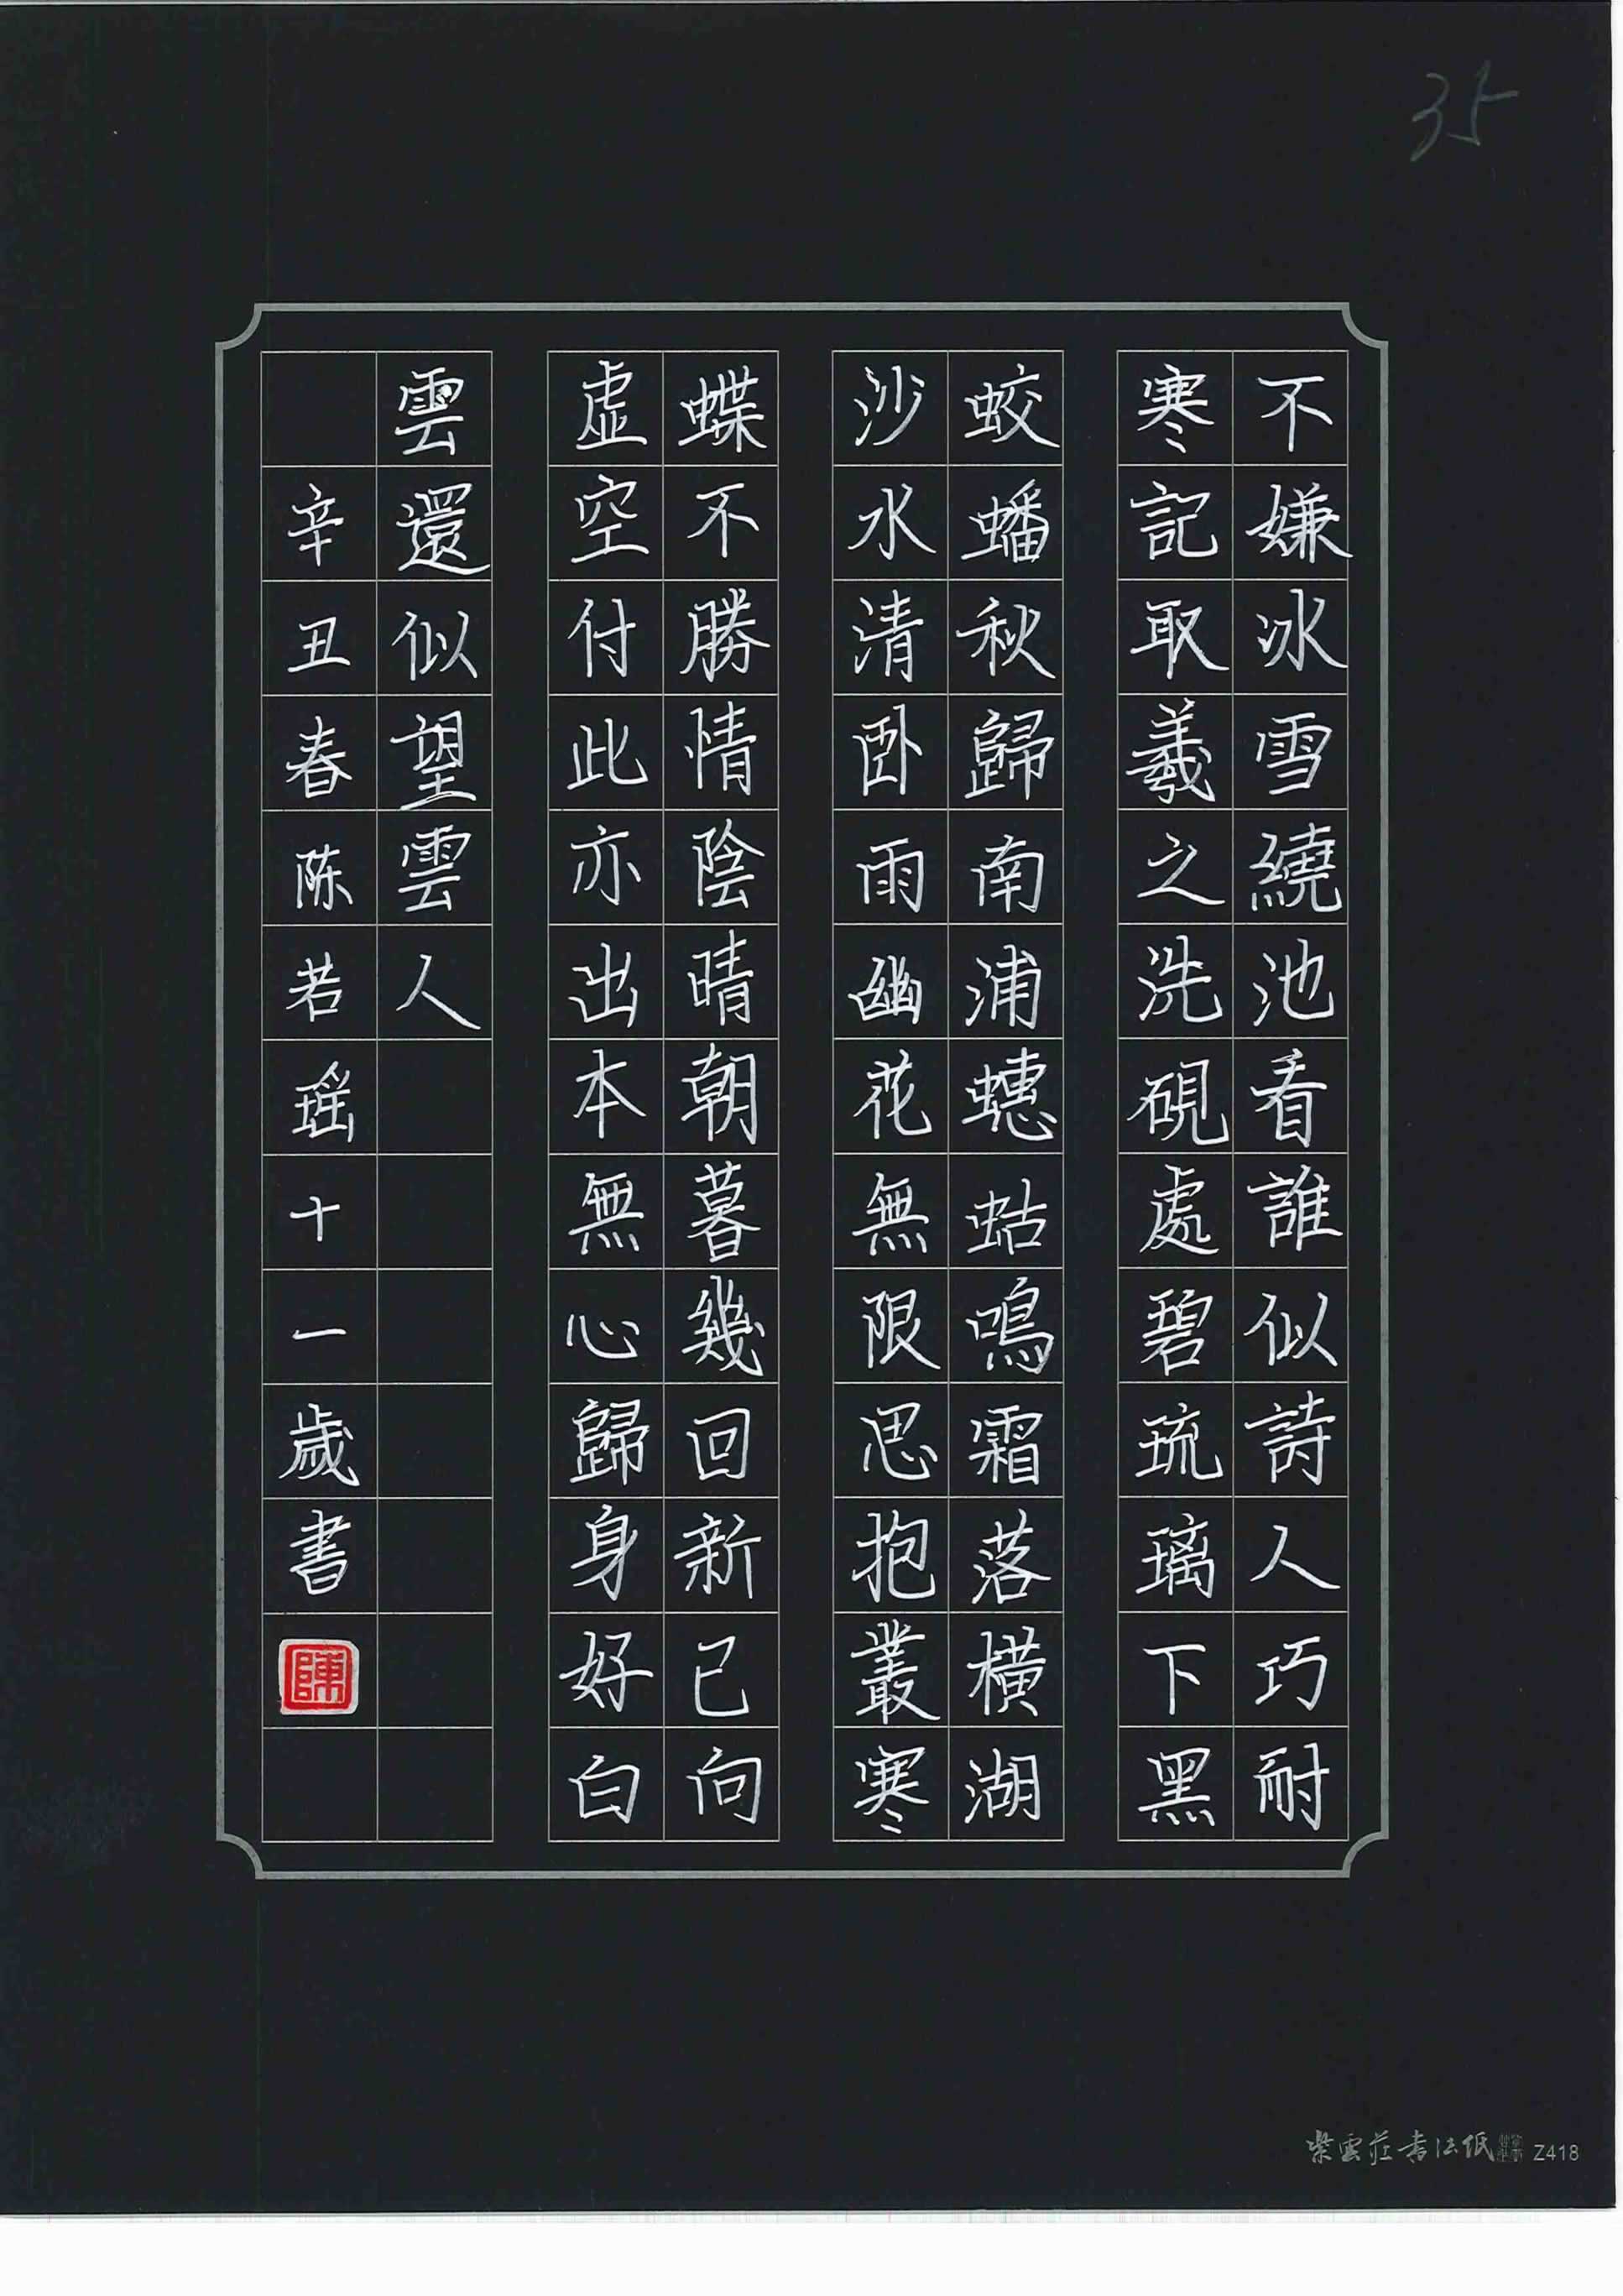 35
不嫌冰雪繞池看誰似詩人巧耐
寒記取羲之洗硯處碧琉璃下黑
蛟蟠秋歸南浦蟪蛄鳴霜落橫湖
沙水清卧雨幽花無限思抱叢寒
蝶不勝情陰晴朝暮幾回新已向
虛空付此亦出本無心歸身好白
雲還似望雲人
辛丑春陈若瑶十一歲書
陳
紫雲莊書法紙 Z418